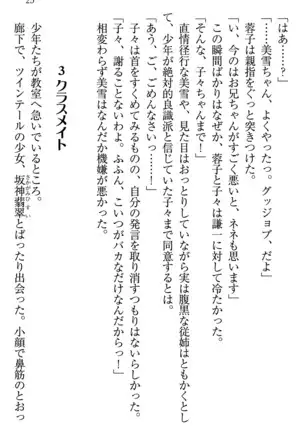 25
「はあ……？」
「……美雪ちゃん、よくやったっ。グッジョブ、だよ」
蓉子は親指をぐっと突きつけた。
「い、今のはお兄ちゃんがすごく悪いと、ネネも思います」
この瞬間ばかりはなぜか、蓉子と子々は謙一に対して冷たかった。
「そんな、子々ちゃんまで！」
直情径行な美雪や、見た目はおっとりしていながら実は腹黒な従姉はともかくとし
て、少年が絶対的良識派と信じていた子々まで同意するとは。
「あう、ご、ごめんなさいっ……！」
子々は首をすくめてみるものの、自分の発言を取り消すつもりはないらしかった。
「子々、謝ることないわよ。ふふん、こいつがバカなだけなんだからっ！」
相変わらず美雪はなんだか機嫌が悪かった。
3 クラスメイト
少年たちが教室へ急いでいるところ。
廊下で、ツインテールの少女、坂神翡翠とばったり出会った。小顔で鼻筋のとおっ